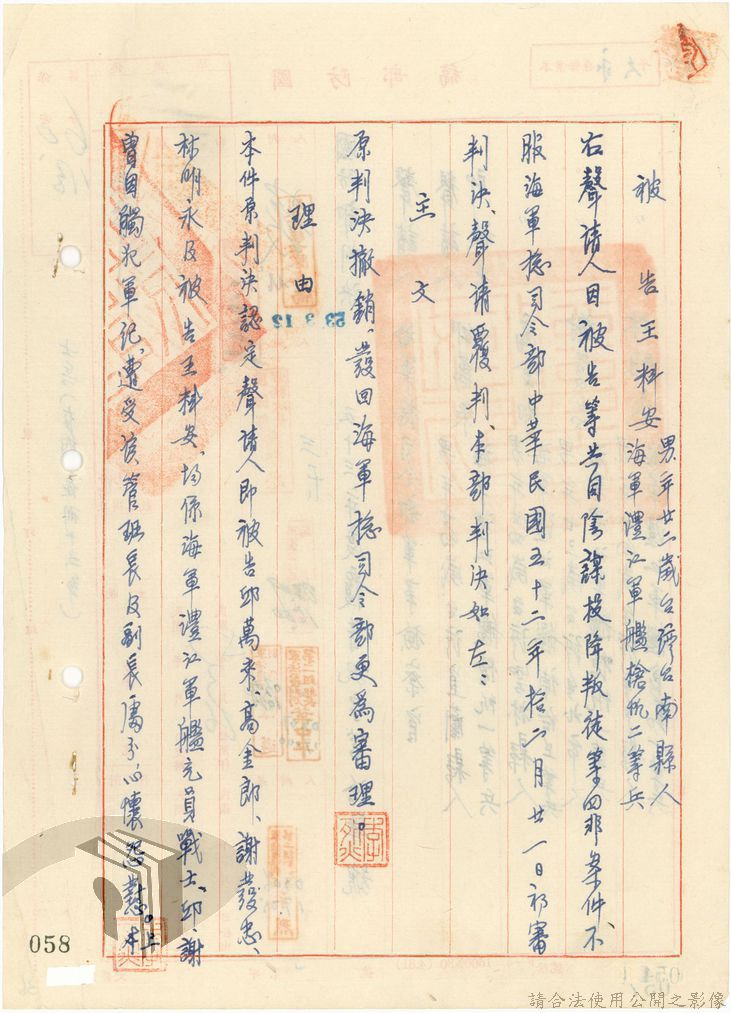 被告王科安 男年廿二歲台灣台南縣人
海軍澧江軍艦槍帆二等兵
右聲請人因被告等共同陰謀投降叛徒等罪非案件、不
服海軍總司令部中華民國五十二年拾二月廿一日初審
判決、聲請覆判、本部判決如左：
主文
原判決撤銷、發回海軍總司令部更為審理。
理由
本件原判決認定聲請人即被告邱萬來、高金郎、謝發忠、
林明永及被告王科安、均係海軍澧江軍艦充員戰士、邱、謝
曾因觸犯軍紀、遭受該管班長及副長處分心懷怨懟。
53.3.12
058
請合法使用公開之影像